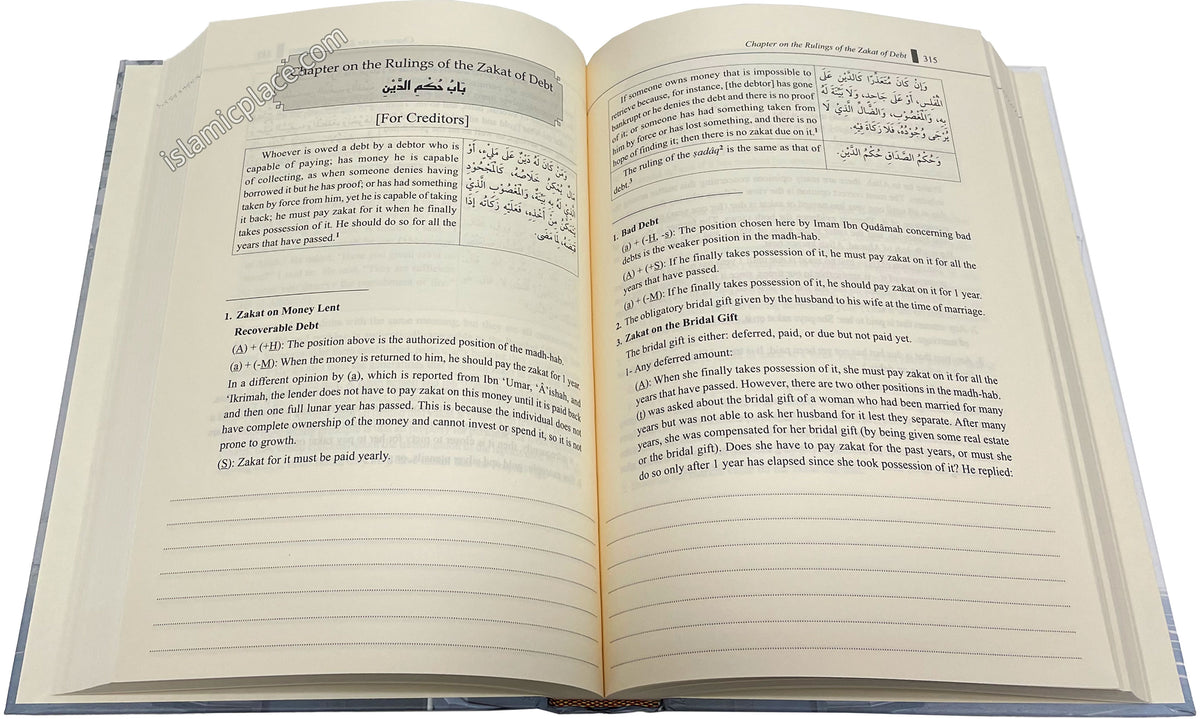 islamicplace.com
Chapter on the Rulings of the Zakat of Debt
بَابُ حُكْمِ الدَّيْنِ
[For Creditors]
Whoever is owed a debt by a debtor who is
capable of paying; has money he is capable
of collecting, as when someone denies having
borrowed it but he has proof; or has had something
taken by force from him, yet he is capable of taking
it back; he must pay zakat for it when he finally
takes possession of it. He should do so for all the
years that have passed.¹
وَمَنْ كَانَ لَهُ دَيْنٌ عَلَى مَلِيءٍ، أَوْ
مَالٌ يُمْكِنُ خَلَاصُهُ، كَالْمَجْحُودِ
الَّذِي لَهُ بِهِ بَيِّنَةٌ، وَالْمَغْصُوبِ الَّذِي
يَتَمَكَّنُ مِنْ أَخْذِهِ، فَعَلَيْهِ زَكَاتُهُ إِذَا
قَبَضَهُ، لِمَا مَضَى.
1. Zakat on Money Lent
Recoverable Debt
(A) + (+H): The position above is the authorized position of the madh-hab.
(a) + (-M): When the money is returned to him, he should pay the zakat for 1 year
In a different opinion by (a), which is reported from Ibn ‘Umar, ‘Â’ishah, and
‘Ikrimah, the lender does not have to pay zakat on this money until it is paid back
and then one full lunar year has passed. This is because the individual does not
have complete ownership of the money and cannot invest or spend it, so it is not
prone to growth.
(S): Zakat for it must be paid yearly.
Chapter on the Rulings of the Zakat of Debt 315
If someone owns money that is impossible to
retrieve because, for instance, [the debtor] has gone
bankrupt or he denies the debt and there is no proof
of it; or someone has had something taken from
him by force or has lost something, and there is no
hope of finding it; then there is no zakat due on it.¹
وَإِنْ كَانَ مُتَعَذِّرًا كَالدَّيْنِ عَلَى
الْمُفْلِسِ، أَوْ عَلَى جَاحِدٍ، وَلَا بَيِّنَةَ لَهُ
بِهِ، وَالْمَغْصُوبِ، وَالضَّالِّ الَّذِي لَا
يُرْجَى وُجُودُهُ، فَلَا زَكَاةَ فِيْهِ.
The ruling of the ṣadâq² is the same as that of
debt.³
وَحُكْمُ الصَّدَاقِ حُكْمُ الدَّيْنِ.
1. Bad Debt
(a) + (-H, -s): The position chosen here by Imam Ibn Qudâmah concerning bad
debts is the weaker position in the madh-hab.
(A) + (+S): If he finally takes possession of it, he must pay zakat on it for all the
years that have passed.
(a) + (-M): If he finally takes possession of it, he should pay zakat on it for 1 year.
2. The obligatory bridal gift given by the husband to his wife at the time of marriage.
3. Zakat on the Bridal Gift
The bridal gift is either: deferred, paid, or due but not paid yet.
1- Any deferred amount:
(A): When she finally takes possession of it, she must pay zakat on it for all the
years that have passed. However, there are two other positions in the madh-hab.
(t) was asked about the bridal gift of a woman who had been married for many
years but was not able to ask her husband for it lest they separate. After many
years, she was compensated for her bridal gift (by being given some real estate
or the bridal gift). Does she have to pay zakat for the past years, or must she
do so only after 1 year has elapsed since she took possession of it? He replied: